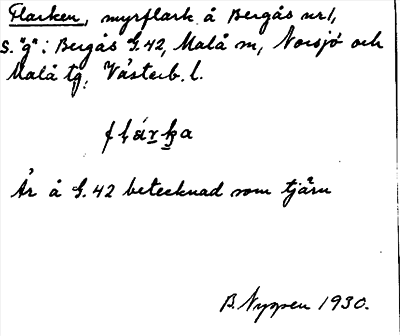 Flarken, myrflark å Bergås nr 1,
S. "g": Bergås G.42, Malå sn, Norsjö och
Malå tg, Västerb. l.
flárka
Är å G.42 betecknad som tjärn
B. Nyppen 1930.